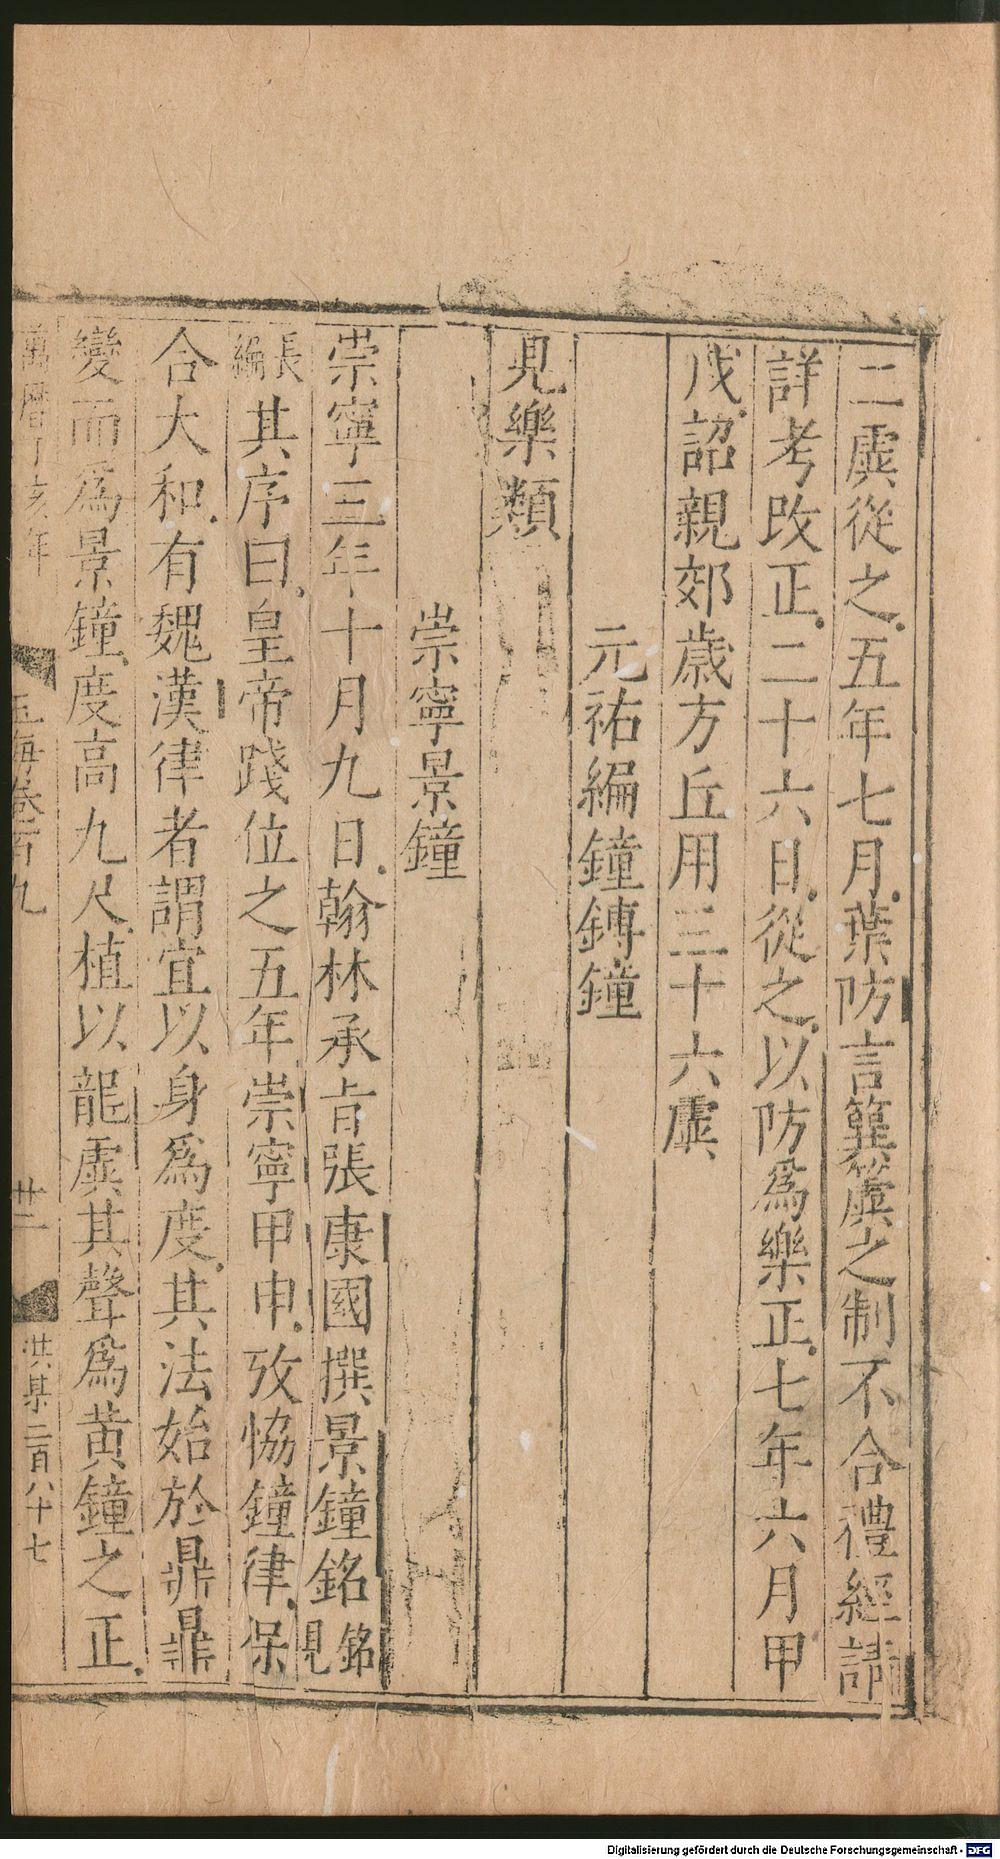 二虡從之五年七月葉防言簨簴之制不合禮經請
詳考改正二十六日從之以防爲樂正七年六月甲
戊詔親郊歲方丘用三十六虡
元祐編鐘鎛鐘
見樂類
崇寧景鐘
崇寧三年十月九日翰林承旨張康國撰景鐘銘銘見
長編其序曰皇帝踐位之五年崇寧甲申攷恊鐘律保
合大和有魏漢律者謂宜以身爲度其法始於鼎鼎
變而爲景鐘度高九尺植以龍虡其聲爲黄鐘之正
萬曆丁亥年
玉海卷百九
廿二
洪某二百八十七
Digitalisierung gefördert durch die Deutsche Forschungsgemeinschaft - DFG